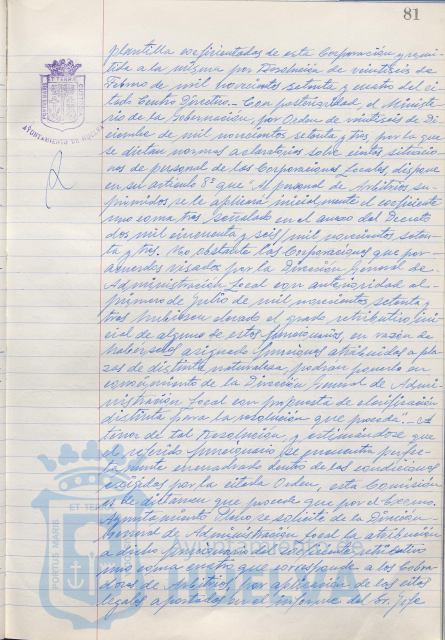 81
plantilla coeficientadas de esta Corporación y remi-
tida a la misma por Resolución de veintiseis de
Febrero de mil novecientos setenta y cuatro del ci-
tado Centro Directivo.- Con posterioridad, el Ministe-
rio de la Gobernación, por Orden de veintiseis de Di-
ciembre de mil novecientos setenta y tres, por la que
se dictan normas aclaratorias sobre ciertas situacio-
nes de personal de las Corporaciones Locales, dispone
en su artículo 8º que "Al personal de Arbitrios su-
primidos se le aplicará inicialmente el coeficiente
uno coma tres señalado en el anexo del Decreto
dos mil cincuenta y seis/mil novecientos seten-
ta y tres. No obstante las Corporaciones que por
acuerdos visados por la Dirección General de
Administración Local con anterioridad al
primero de Julio de mil novecientos setenta y
tres hubiesen elevado el grado retributivo ini-
cial de alguno de estos funcionarios, en razón de
habérseles asignado funciones atribuidas a pla-
zas de distinta naturaleza, podrán ponerlo en
conocimiento de la Dirección General de Admi-
nistración Local con propuesta de clasificación
distinta para la resolución que proceda".- A
tenor de tal Resolución y estimándose que
el referido funcionario se encuentra perfec-
tamente encuadrado dentro de las condiciones
exigidas por la citada Orden, esta Comisión
es de dictamen que procede que por el Excmo.
Ayuntamiento Pleno se solicite de la Dirección
General de Administración Local la atribución
a dicho funcionario del coeficiente retributivo
uno coma cuatro que corresponde a los Cobra-
dores de Arbitrios, por aplicación de los citos
legales aportados en el informe del Sr. Jefe
AYUNTAMIENTO DE HUELVA
PORTUS MARIS
ET TERRAE